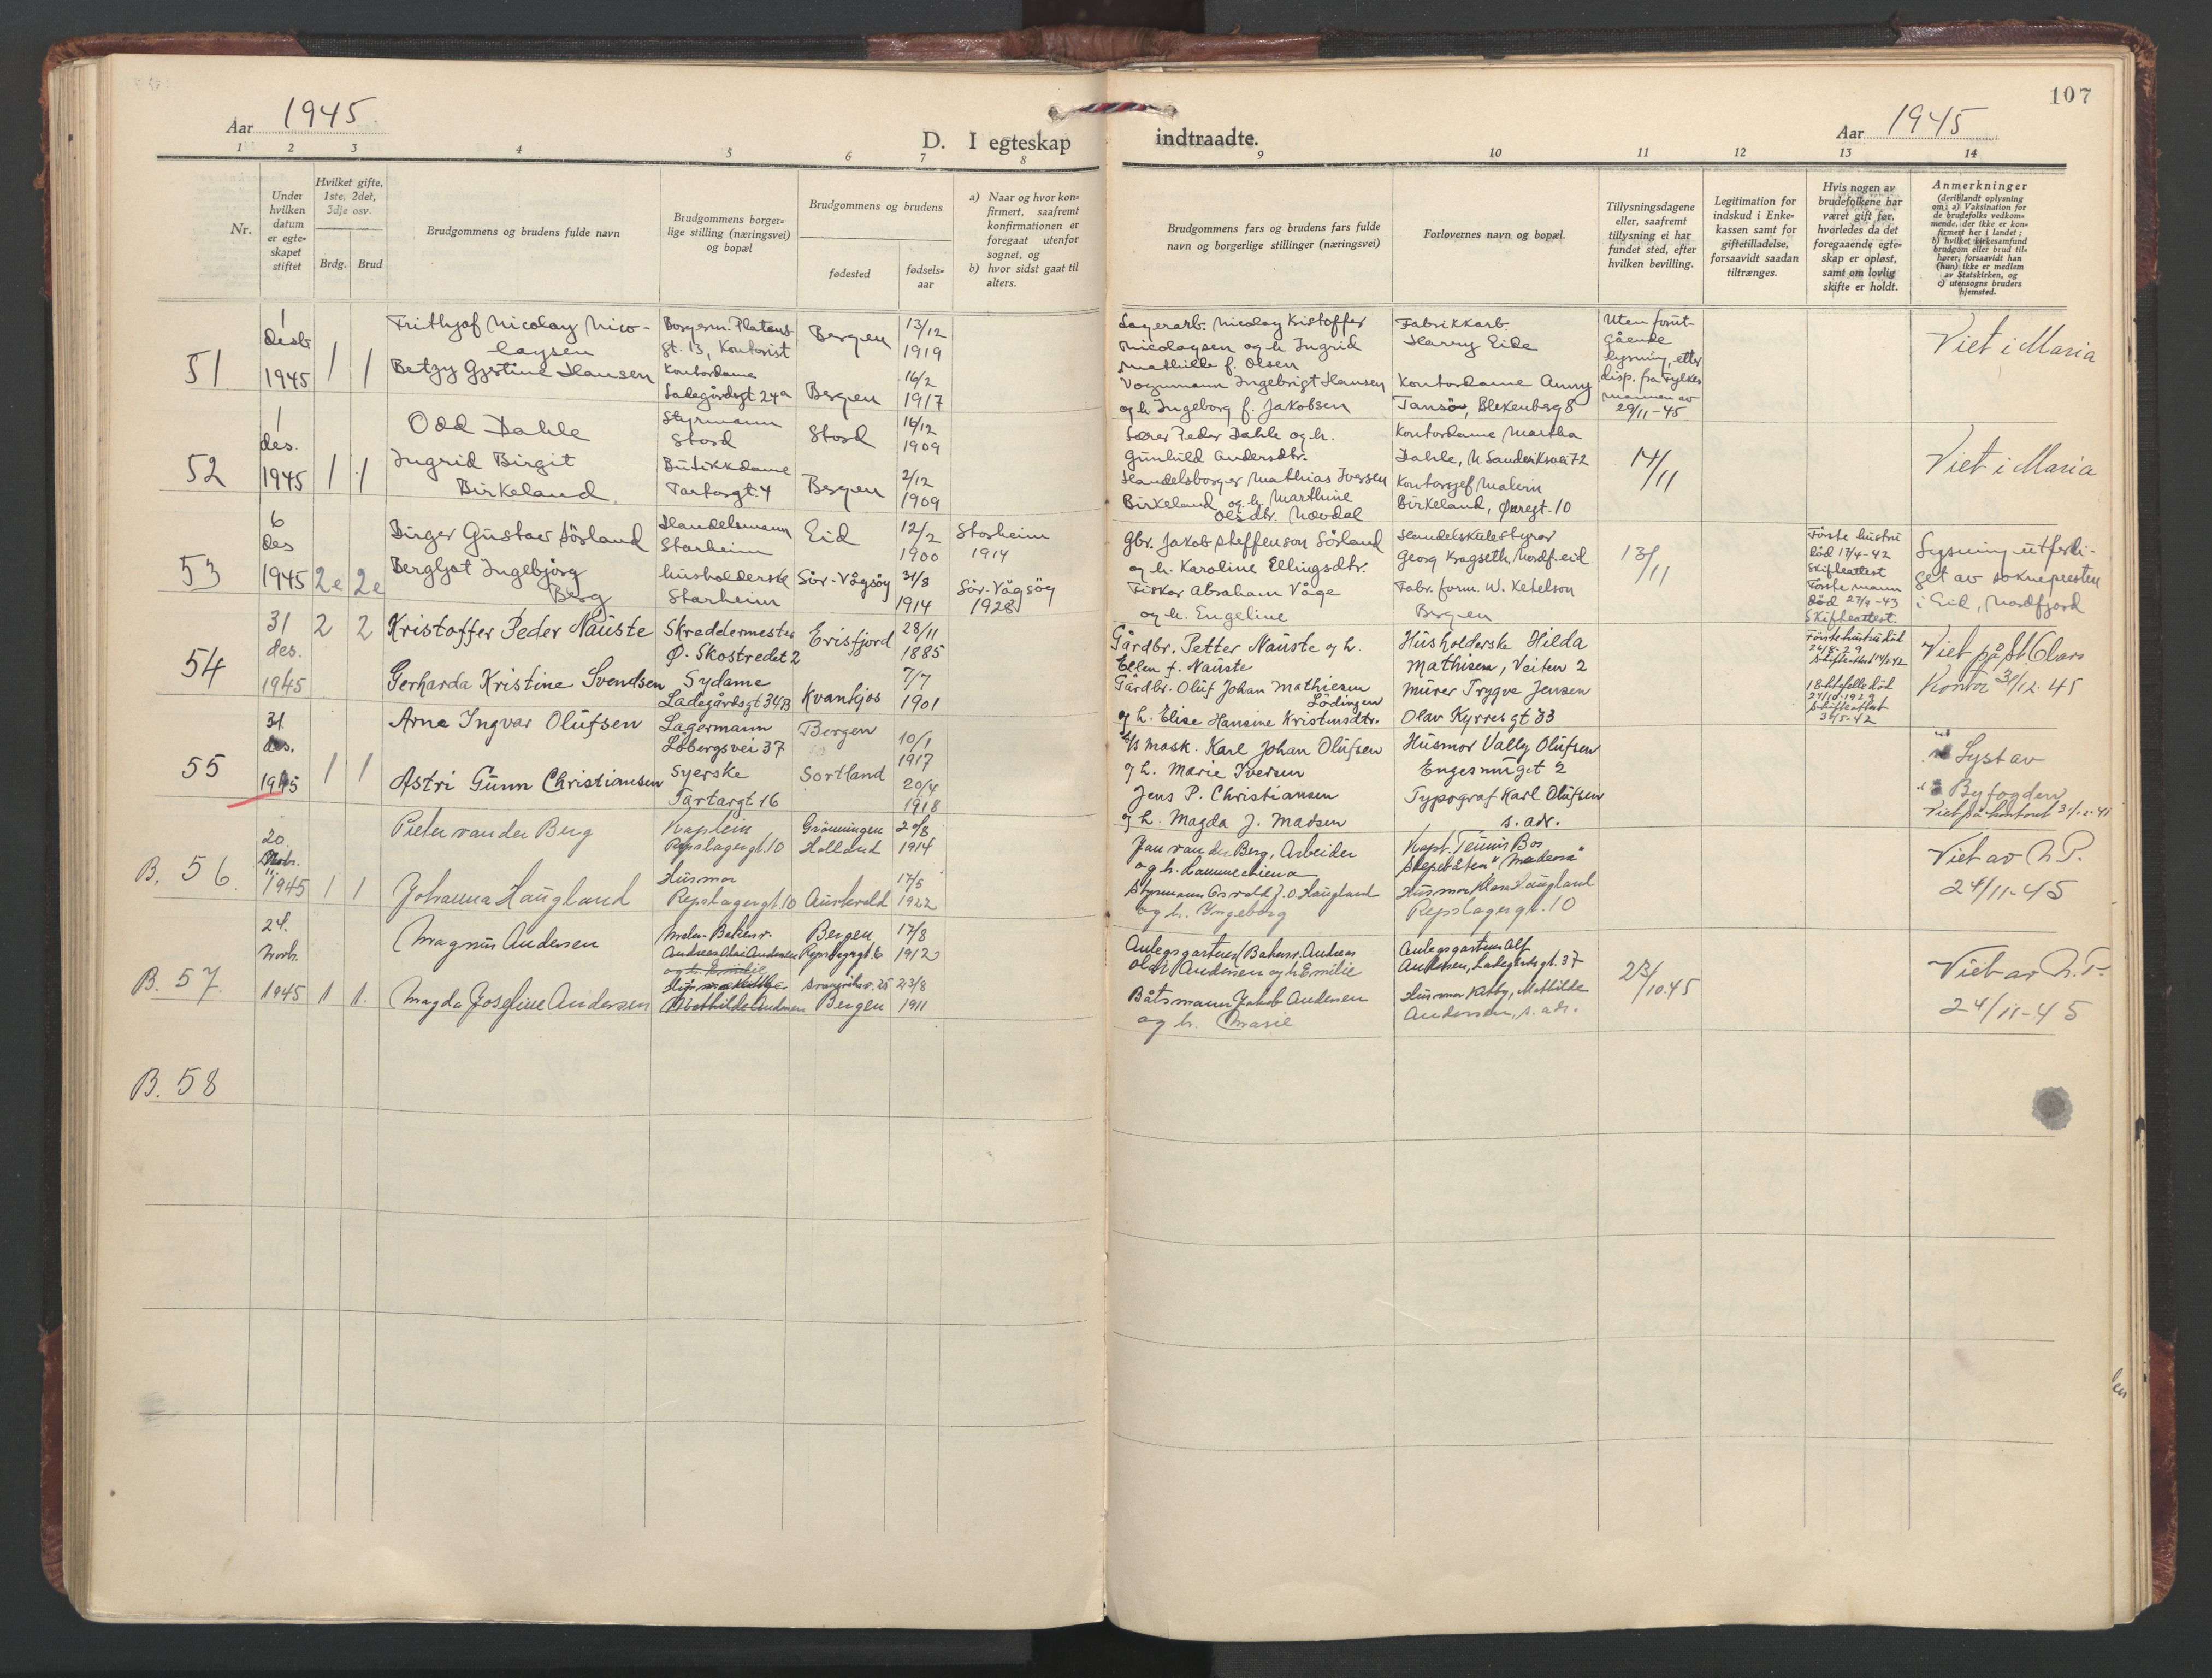 107
Aar 1945
D. I egteskap indtraadte.
Aar 1945
1 2 3 4 5 6 7 8 9 10 11 12 13 14
Nr.
Under
hvilken
datum
er egte-
skapet
stiftet
Hvilket gifte,
1ste, 2det,
3dje osv.
Brdg. Brud
Brudgommens og brudens fulde navn
Brudgommens borger-
lige stilling (næringsvei)
og bopæl
Brudgommens og brudens
fødested
fødsels-
aar
a) Naar og hvor kon-
firmert, saafremt
konfirmationen er
foregaat utenfor
sognet, og
b) hvor sidst gaat til
alters.
Brudgommens fars og brudens fars fulde
navn og borgerlige stillinger (næringsvei)
Forlovernes navn og bopæl.
Tillysningsdagene
eller, saafremt
tillysning ei har
fundet sted, efter
hvilken bevilling.
Legitimation for
indskud i Enke-
kassen samt for
giftetilladelse,
forsaavidt saadan
tiltrænges.
Hvis nogen av
brudefolkene har
været gift før,
hvorledes da det
foregaaende egte-
skap er opløst,
samt om lovlig
skifte er holdt.
Anmerkninger
(deriblandt oplysning
om: a) Vaksination for
de brudefolks vedkom-
mende, der ikke er kon-
firmert her i landet;
b) hvilket kirkesamfund
brudgom eller brud til-
hører, forsaavidt han
(hun) ikke er medlem
av Statskirken, og
c) utensogns bruders
hjemsted.
51
1
desbr
1945
1 1
Frithjof Nicolay Nico-
laysen
Betzy Gjertine Hansen
Borgerm. Platous
gt. 13, Kontorist
Kontordame
Ladegårdsgt 24a
Bergen
Bergen
13/12
1919
16/2
1917
Lagerarb. Nicolay Kristoffer
Nicolaysen og h. Ingrid
Mathilde f. Olsen
Vognmann Ingebrigt Hansen
og h. Ingeborg f. Jakobsen
Fabrikkarb.
Harry Eide
Kontordame Anny
Tansøy, Blekenberg 8
Uten forut-
gående
lysning, etter
disp. fra Fylkes
mannen av
29/11-45
Viet i Maria
52
1
des.
1945
1 1
Odd Dahle
Ingrid Birgit
Birkeland
Styrmann
Stord
Butikkdame
Tartargt. 4
Stord
Bergen
16/12
1909
2/12
1909
Lærer Peder Dahle og h.
Gunhild Andersdtr.
Handelsborger Mathias Iversen
Birkeland og h. Marthine
Olsdtr. Novdal
Kontordame Martha
Dahle, N. Sandviksvei 72
Kontorsjef Malvin
Birkeland, Øvregt. 10
14/11
Viet i Maria
53
6
des
1945
2e 2e
Birger Gustav Sörland
Bergljot Ingebjörg
Berg
Handelsmann
Starheim
husholderske
Starheim
Eid
Sör-Vågsöy
12/2
1900
31/8
1914
Storheim
1914
Sör-Vågsöy
1928
Gbr. Jakob Steffenson Sörland
og h. Karoline Ellingsdtr.
Fisker Abraham Våge
og h. Engeline
Handelskulestyrar
Georg Kragseth, Nordf.eid
Fabr. form. W. Ketelson
Bergen
13/11
Förste hustru
död 17/4-42
Skifteattest
Förste mann
död 27/7-43
Skifteattest.
Lysning utferdi-
get av sokneprесten
i Eid, Nordfjord
54
31
des.
1945
2 2
Kristoffer Peder Nauste
Gerharda Kristine Svendsen
Skreddermester
Ø. Skostredet 2
Sydame
Ladegårdsgt 34B
Erisfjord
Kvantjos
28/11
1885
7/7
1901
Gårdbr. Petter Nauste og h.
Ellen f. Nauste
Gårdbr. Oluf Johan Mathiesen
Lödingen
og h. Elise Hansine Kristensdtr.
Husholderske Hilda
Mathisen, Veiten 2
Murer Trygve Jensen
Olav Kyrres gt 33
Förste hustru död
24/8-29
Skifteattest 14/3-42
1 Ektefelle död
27/10.1929
Skifteattest
30/5-42
Viet på St. Olavs
Kontor 31/12.45
55
31
des.
1945
1 1
Arne Ingvar Olufsen
Astri Gunn Christiansen
Lagermann
Löbergsvei 37
Syerske
Tartargt 16
Bergen
Sortland
10/1
1917
20/4
1918
Mask. Karl Johan Olufsen
og h. Marie Iversen
Jens P. Christiansen
og h. Magda J. Madsen
Husmor Vally Olufsen
Engesmuget 2
Typograf Karl Olufsen
s. adr.
Lyst av
Byfogden
Viet på kontoret 31/12-45
B. 56.
20.
Novbr.
1945
1 1
Pieter van der Berg
Johanna Haugland
Kaptein
Repslagergt. 10
Husmor
Repslagergt 10
Grönningen
Holland
Austevold
20/8
1914
17/5
1922
Jan van der Berg, Arbeider
og h. Hammechiena
Styrmann Osvald J. O. Haugland
og h. Yngeborg
Kapt. Teunis Bos
Slepebåten "Madoera"
Husmor Klara Haugland
Repslagergt. 10
Viet av N.P.
24/11-45
B. 57.
24.
Novb.
1945
1 1.
Magnus Andersen
Magda Josefine Andersen
Andreas Olai Andersen
og h. Emilie
Mathilde Andersen
Bergen
Repslagergt. 6
Bergen
17/8
1912
23/8
1911
Anlegsgartner Andreas
Olai Andersen og h Emilie
Båtsmann Jakob Andersen
og h. Marie
Anlegsgartner Alf
Andersen, Ladegårdsgt. 37
Husmor Kitty, Mathilde
Andersen, s. adr.
23/10.45
Viet av N.P.
24/11-45
B. 58